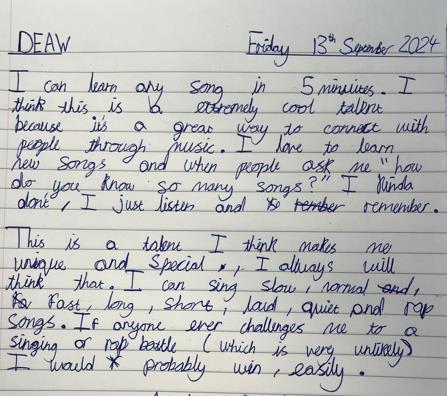 DEAW Friday 13th September 2024
I can learn any song in 5 minuites. I
think this is a extremely cool talent
because it's a great way to connect with
people through music. I love to learn
new songs and when people ask me "how
do you know so many songs?" I kinda
dont, I just listen and remember.
This is a talent I think makes me
unique and special, I always will
think that. I can sing slow, normal and,
Fast, long, short, loud, quiet and rap
songs. If anyone ever challenges me to a
singing or rap battle (which is very unlikely)
I would probably win, easily.